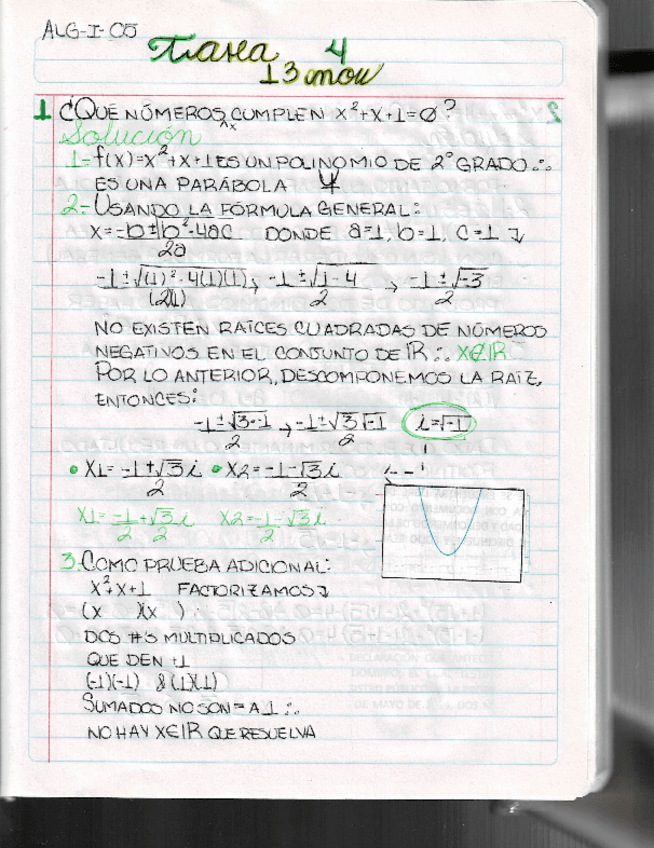 ALG-I-05
Tarea 4
13 mau
1 ¿QUÉ NÚMEROS CUMPLEN x²+x+1=0?
^x
Solución
1- f(x)=x²+x+1 ES UN POLINOMIO DE 2° GRADO ∴
ES UNA PARÁBOLA
2- USANDO LA FÓRMULA GENERAL:
x = -b±√b²-4ac / 2a DONDE a=1, b=1, c=1 ↴
-1±√(1)²-4(1)(1) / (2(1)) → -1±√1-4 / 2 → -1±√-3 / 2
NO EXISTEN RAÍCES CUADRADAS DE NÚMEROS
NEGATIVOS EN EL CONJUNTO DE ℝ ∴ X∉ℝ
POR LO ANTERIOR, DESCOMPONEMOS LA RAÍZ,
ENTONCES:
-1±√3·-1 / 2 → -1±√3 √-1 / 2 i=√-1
• X1= -1+√3 i / 2 • X2= -1-√3 i / 2
X1= -1/2 + √3/2 i X2= -1/2 - √3/2 i
3- COMO PRUEBA ADICIONAL:
x²+x+1 FACTORIZAMOS ↴
(x )(x )
DOS #S MULTIPLICADOS
QUE DEN +1
(-1)(-1) & (1)(1)
SUMADOS NO SON = A 1 ∴
NO HAY X∈ℝ QUE RESUELVA